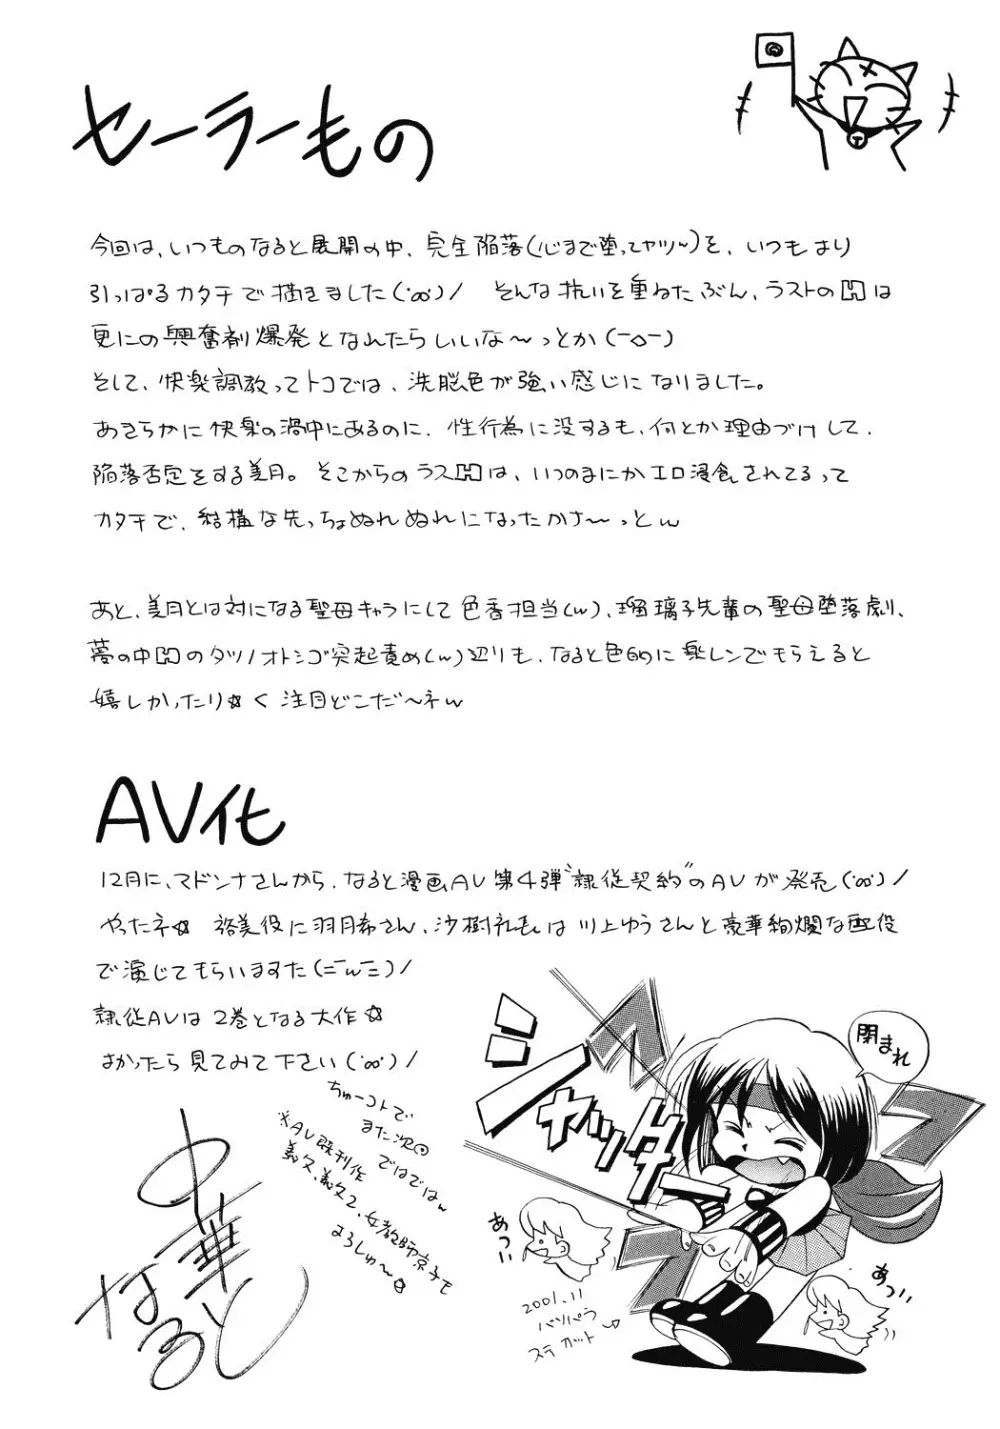 セーラーもの
今回は、いつものなると展開の中、完全陥落(心まで堕ってヤツ~)を、いつもより
引っぱるカタチで描きました(°∞°)/ そんな抗いを重ねたぶん、ラストのHは
更にの興奮剤爆発となれたらいいな~っとか(ー◇ー)
そして、快楽調教ってトコでは、洗脳色が強い感じになりました。
あきらかに快楽の渦中にあるのに、性行為に没するも、何とか理由づけして、
陥落否定をする美月。そこからのラスHは、いつのまにかエロ浸食されてるって
カタチで、結構な先っちょぬれぬれになったかさ~っとw
あと、美月とは対になる聖母キャラにして色香担当(w)、瑠璃子先輩の聖母堕落劇、
夢の中Hのタツノオトシゴ突起責め(w)辺りも、なると色的に楽しンでもらえると
嬉しかったり☆く 注目どこだ~ネw
AV化
12月に、マドンナさんから、なると漫画AV第4弾"隷従契約"のAVが発売(°∞°)/
やったネ☆ 裕美役に羽月希さん、沙樹礼もは川上ゆうさんと豪華絢爛な配役
で演じてもらいますた(=ーwー=)/
隷従AVは2巻となる大作☆
よかったら見てみて下さい(°∞°)/
ちゅーコトで
また次回
ではではw
※AV既刊作
義父、義父2、女教師京子も
よろしゅ~☆
中華なると
シャッター
閉まれ
あつい
あつい
2001.11
パソパラ
ステカット